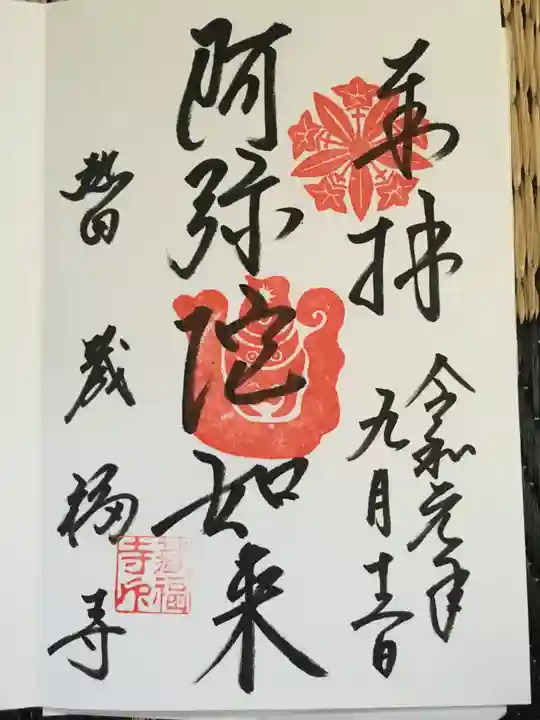 奉拝
令和元年
九月
阿弥陀如来
熱田 蔵福寺
蔵福寺印